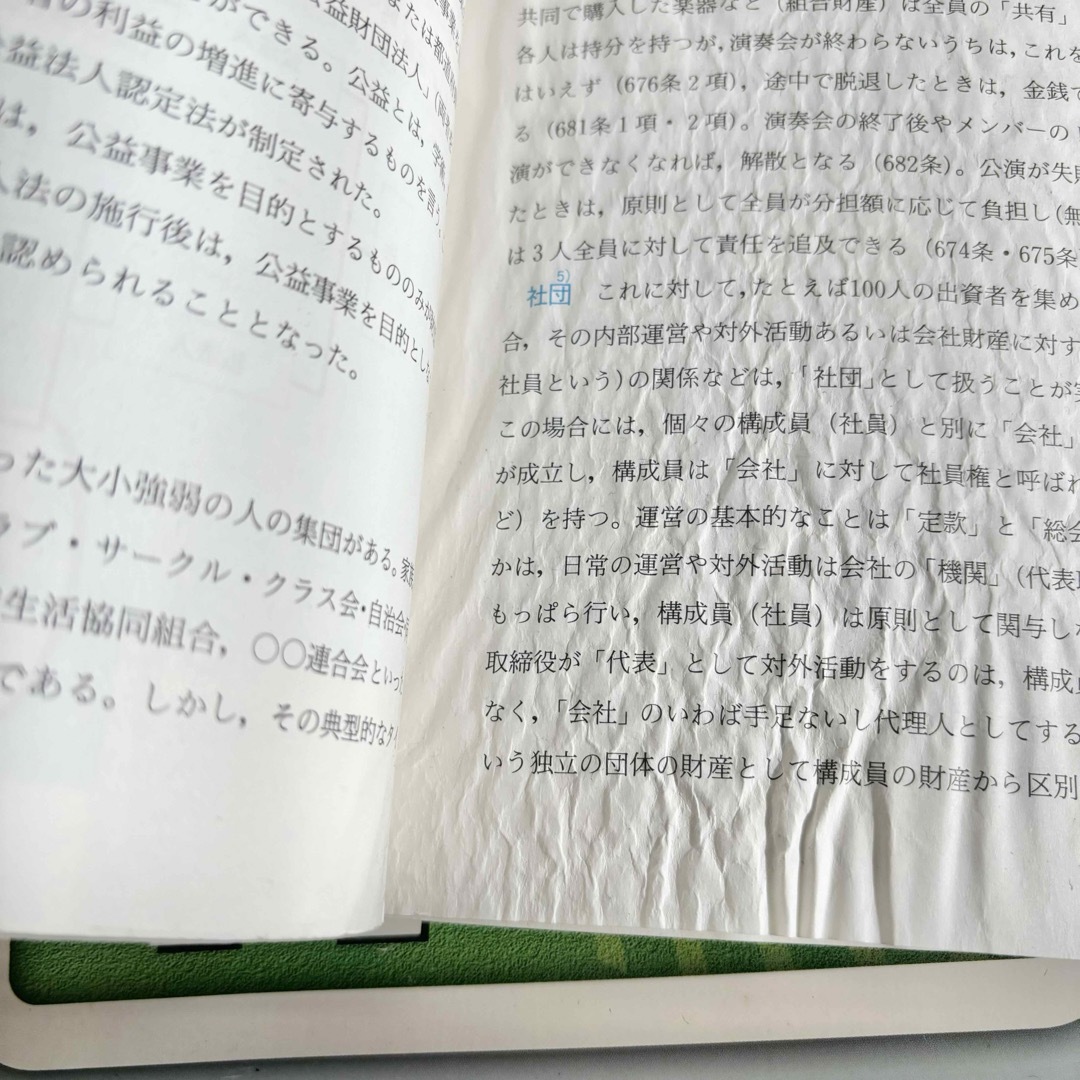 ができる。公益とは，学術
の利益の増進に寄与するものを言う
益法人認定法が制定された。
は，公益事業を目的とするもののみが
人法の施行後は，公益事業を目的とした
認められることとなった。
った大小強弱の人の集団がある。家族
ラブ・サークル・クラス会・自治会
生活協同組合，〇〇連合会といった
である。しかし，その典型的なタ
共同で購入した楽器など（組合財産）は全員の「共有」
各人は持分を持つが，演奏会が終わらないうちは，これを
はいえず（676条2項），途中で脱退したときは，金銭で
る（681条1項・2項）。演奏会の終了後やメンバーの
演ができなくなれば，解散となる（682条）。公演が失敗
たときは，原則として全員が分担額に応じて負担し（無
は3人全員に対して責任を追及できる（674条・675条
社団5) これに対して，たとえば100人の出資者を集め
合，その内部運営や対外活動あるいは会社財産に対す
社員という）の関係などは，「社団」として扱うことが実
この場合には，個々の構成員（社員）と別に「会社」
が成立し，構成員は「会社」に対して社員権と呼ばれ
ど）を持つ。運営の基本的なことは「定款」と「総会
かは，日常の運営や対外活動は会社の「機関」（代表取
もっぱら行い，構成員（社員）は原則として関与しな
取締役が「代表」として対外活動をするのは，構成員
なく，「会社」のいわば手足ないし代理人としてする
いう独立の団体の財産として構成員の財産から区別